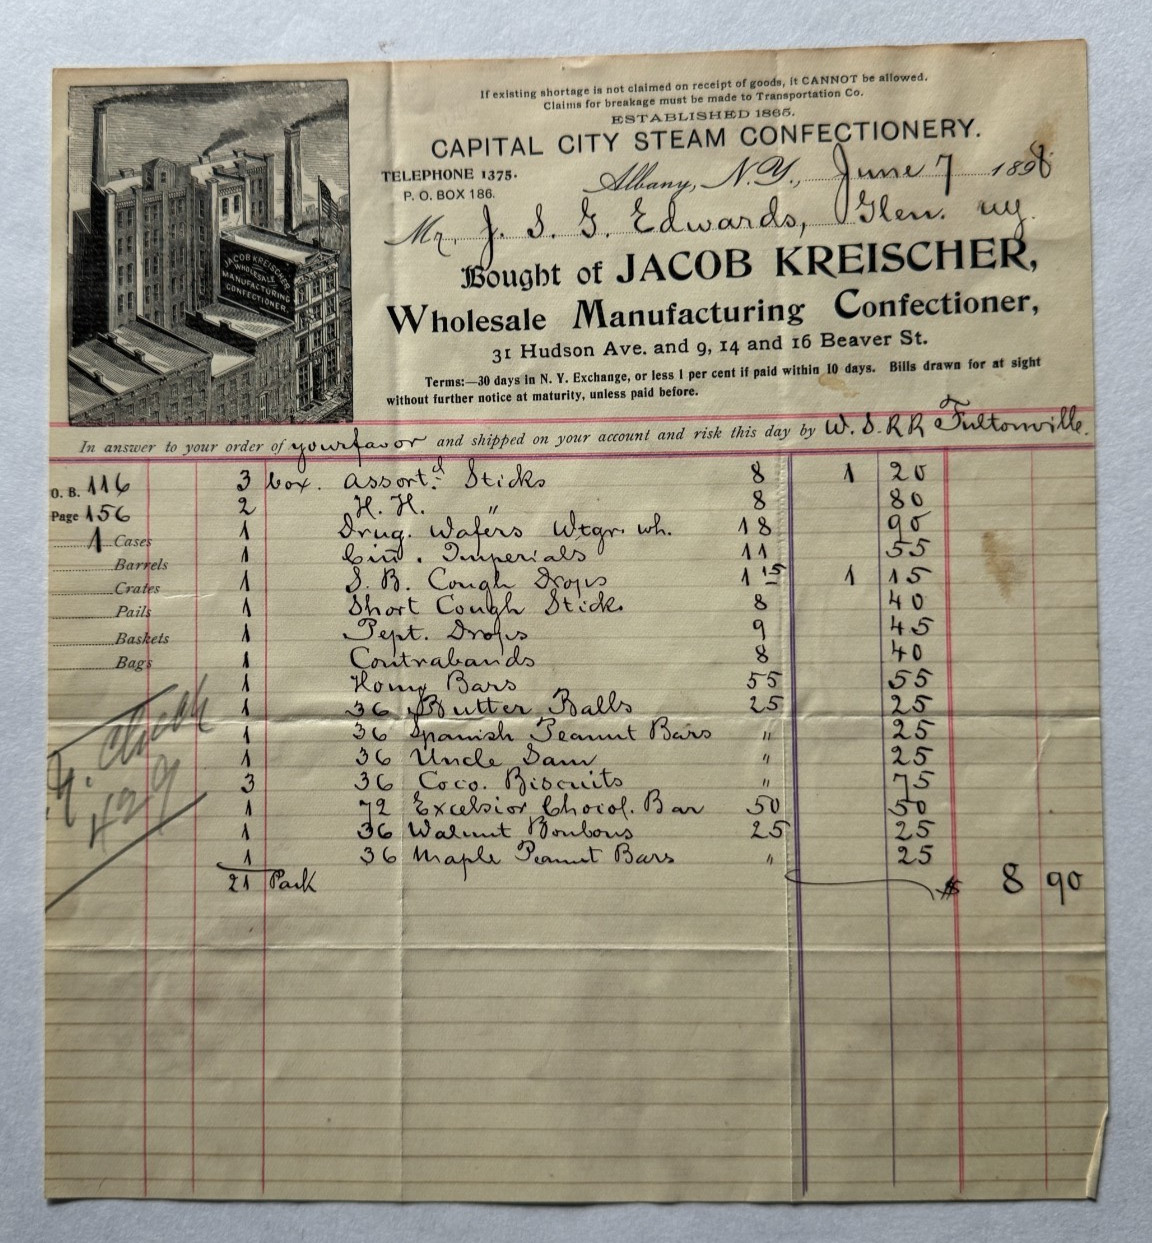 If existing shortage is not claimed on receipt of goods, it CANNOT be allowed.
Claims for breakage must be made to Transportation Co.
ESTABLISHED 1865.
CAPITAL CITY STEAM CONFECTIONERY.
TELEPHONE 1375.
P. O. BOX 186.
Albany, N.Y., June 7 1898
Mr. J. S. G. Edwards, Glen. ny.
Bought of JACOB KREISCHER,
Wholesale Manufacturing Confectioner,
31 Hudson Ave. and 9, 14 and 16 Beaver St.
Terms:—30 days in N. Y. Exchange, or less 1 per cent if paid within 10 days. Bills drawn for at sight
without further notice at maturity, unless paid before.
JACOB KREISCHER
WHOLESALE
MANUFACTURING
CONFECTIONER.
In answer to your order of your favor and shipped on your account and risk this day by W. S. RR Fultonville.
O. B. 116
Page 156
1 Cases
Barrels
Crates
Pails
Baskets
Bags
3 box. Assort.d Sticks 8 1 20
2 H. H. " 8 80
1 Drug. Wafers Wtgr. wh. 18 90
1 Cin. Imperials 11 55
1 S. B. Cough Drops 1 15 1 15
1 Short Cough Stick. 8 40
1 Pept. Drops 9 45
1 Contrabands 8 40
1 Hony Bars 55 55
1 36 Butter Balls 25 25
1 36 Spanish Peanut Bars " 25
1 36 Uncle Sam " 25
3 36 Coco. Biscuits " 75
1 72 Excelsior Chocol. Bar 50 50
1 36 Walnut Bonbons 25 25
1 36 Maple Peanut Bars " 25
21 Pack $ 8 90
check
429